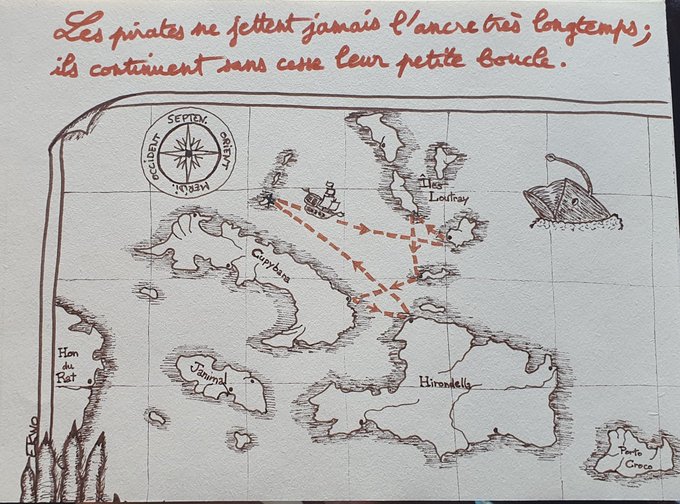 Les pirates ne jettent jamais l'ancre très longtemps ;
ils continuent sans cesse leur petite boucle.
SEPTEN.
OCCIDENT
ORIENT
MERIDI.
Îles
Loutray
Cupybara
Hon
du
Rat
J'animal
Hirondelle
Porto
Croco